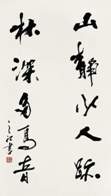 山静少人跡
林深多鳥音